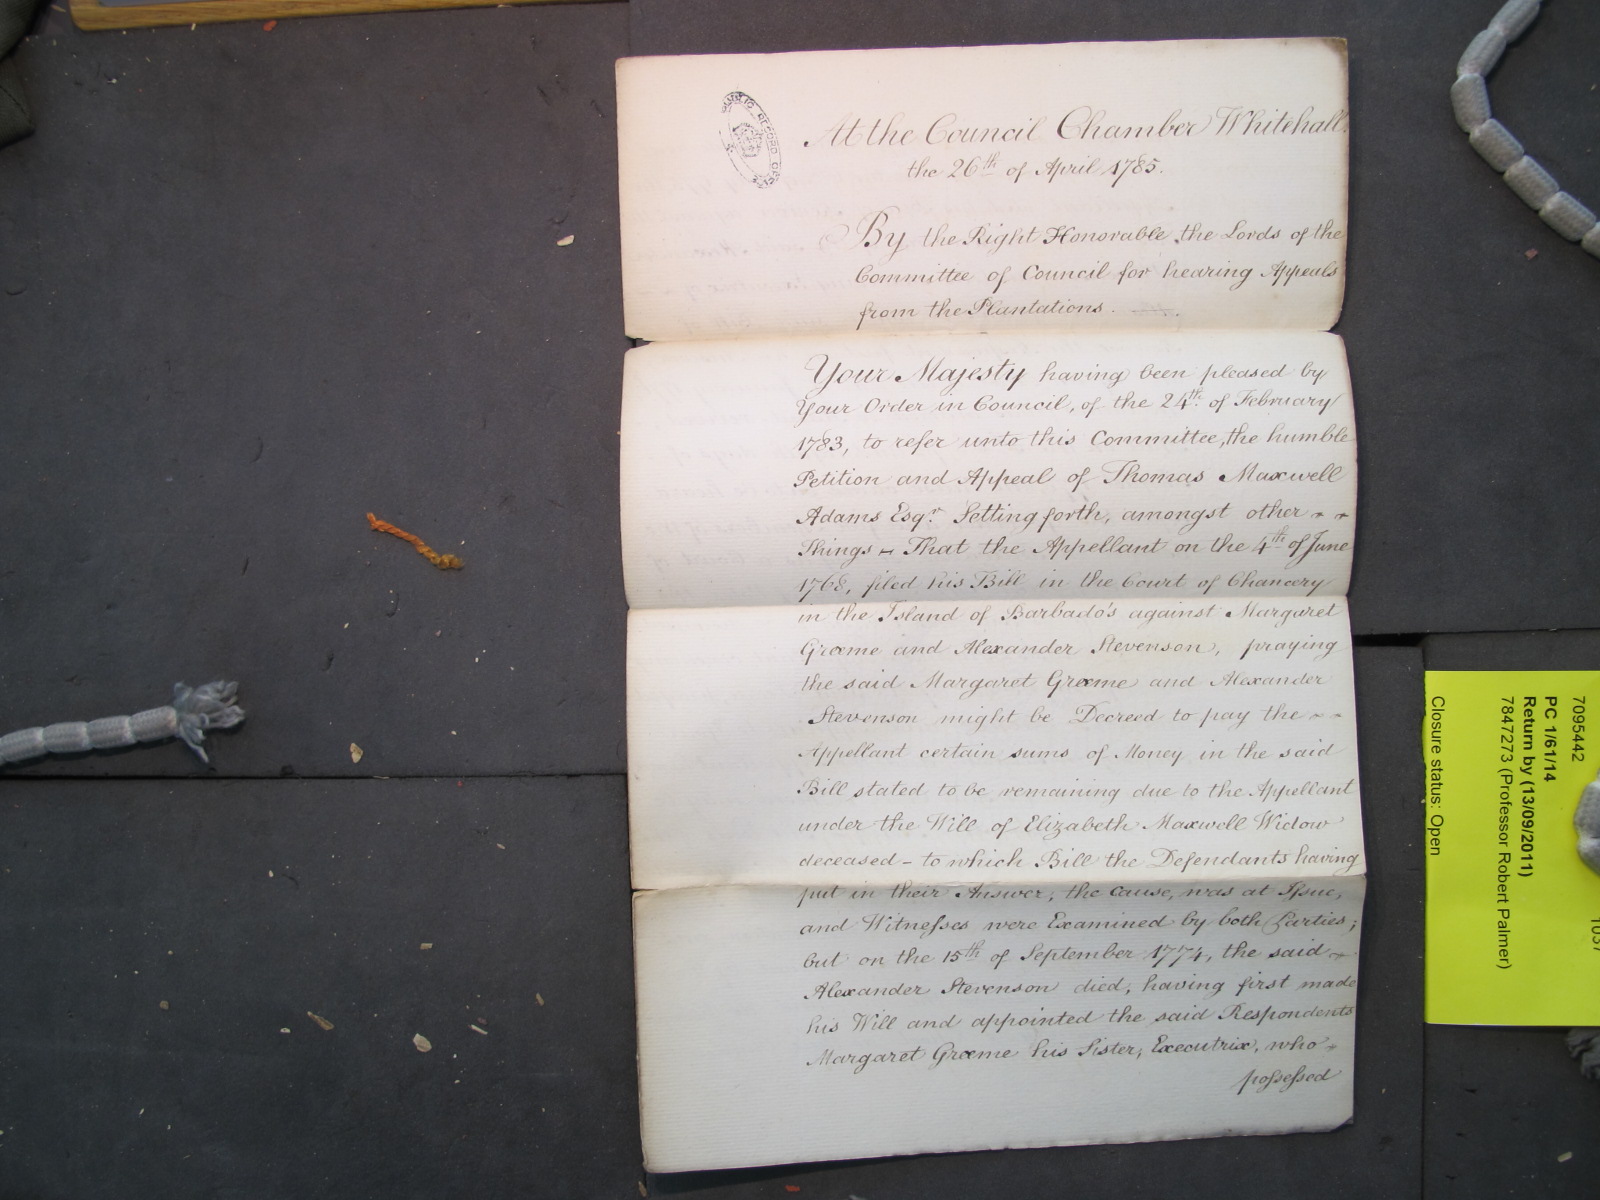 PUBLIC RECORD OFFICE
At the Council Chamber Whitehall
the 26th of April 1785.
By the Right Honorable the Lords of the
Committee of Council for hearing Appeals
from the Plantations.
Your Majesty having been pleased by
Your Order in Council, of the 24th. of February
1783, to refer unto this Committee, the humble
Petition and Appeal of Thomas Maxwell
Adams Esqr. Setting forth, amongst other
Things - That the Appellant on the 4th of June
1768, filed his Bill in the Court of Chancery
in the Island of Barbado's against Margaret
Græme and Alexander Stevenson, praying
the said Margaret Græme and Alexander
Stevenson might be Decreed to pay the
Appellant certain sums of Money in the said
Bill stated to be remaining due to the Appellant
under the Will of Elizabeth Maxwell Widow
deceased - to which Bill the Defendants having
put in their Answer, the cause, was at Issue,
and Witneſses were Examined by both Parties;
but on the 15th of September 1774, the said
Alexander Stevenson died, having first made
his Will and appointed the said Respondents
Margaret Græme his Sister, Executrix, who
poſseſsed
7095442
PC 1/61/14
Return by (13/09/2011)
7847273 (Professor Robert Palmer)
Closure status: Open